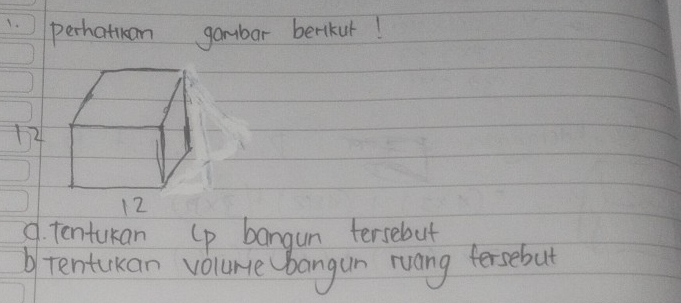 1. perhatikan gambar berikut !
12
12
a. Tentukan Lp bangun tersebut
b Tentukan volume bangun ruang tersebut